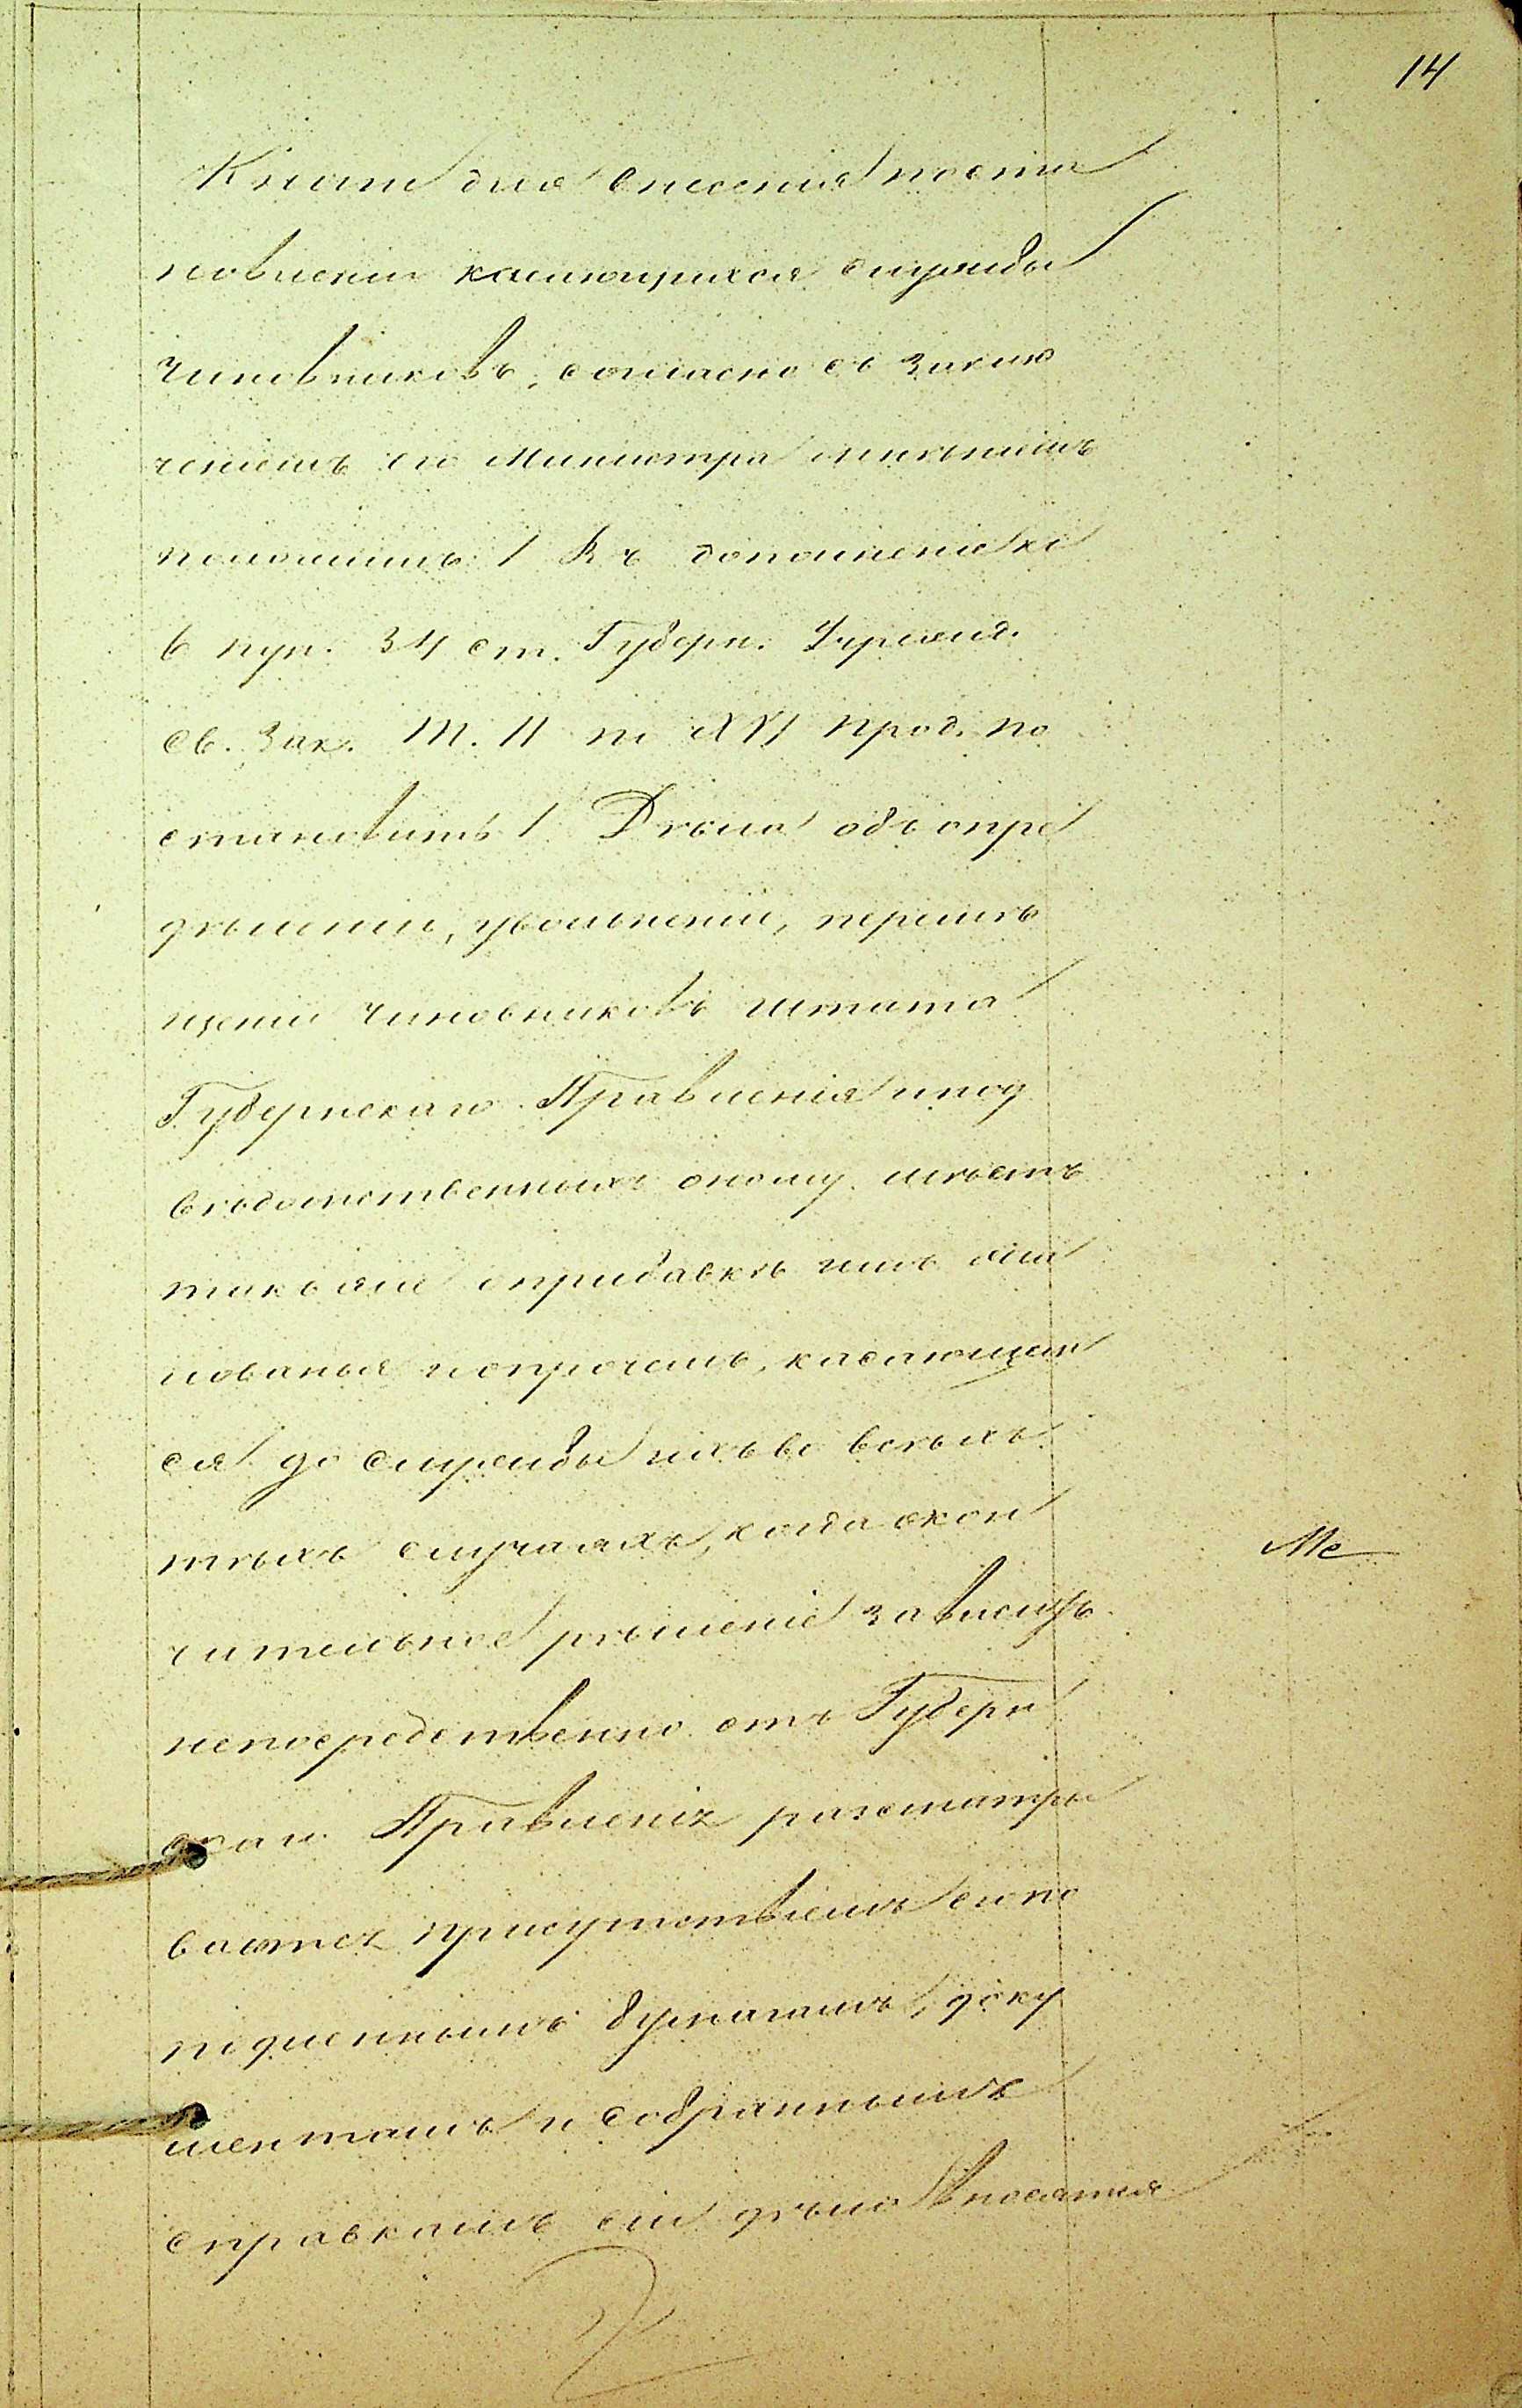 14
Книги для внесенія поста
новленіи касающихся службы
чиновниковъ, согласно съ заклю
ченіемъ его Министра мнѣніемъ
положилъ: 1 Въ дополненіе къ
6 пун. 34 ст. Губерн. Учрежд.
Св. Зак. Т. II по XVI прод. по
становить 1. Дѣла объ опре
дѣленіи, увольненіи, перемѣ
щеніи чиновниковъ штата
Губернскаго Правленія и под
вѣдомственныхъ оному мѣстъ
также о придавкѣ имъ жа
лованья и о прочемъ, касающем
ся до службы ихъ во всѣхъ
тѣхъ случаяхъ, когда окон
чительное рѣшеніе зависитъ
непосредственно отъ Губерн
скаго Правленія разсматри
вается присутствіемъ его по
подлиннымъ бумагамъ, доку
ментамъ и собраннымъ
справкамъ сіи дѣла вносятся